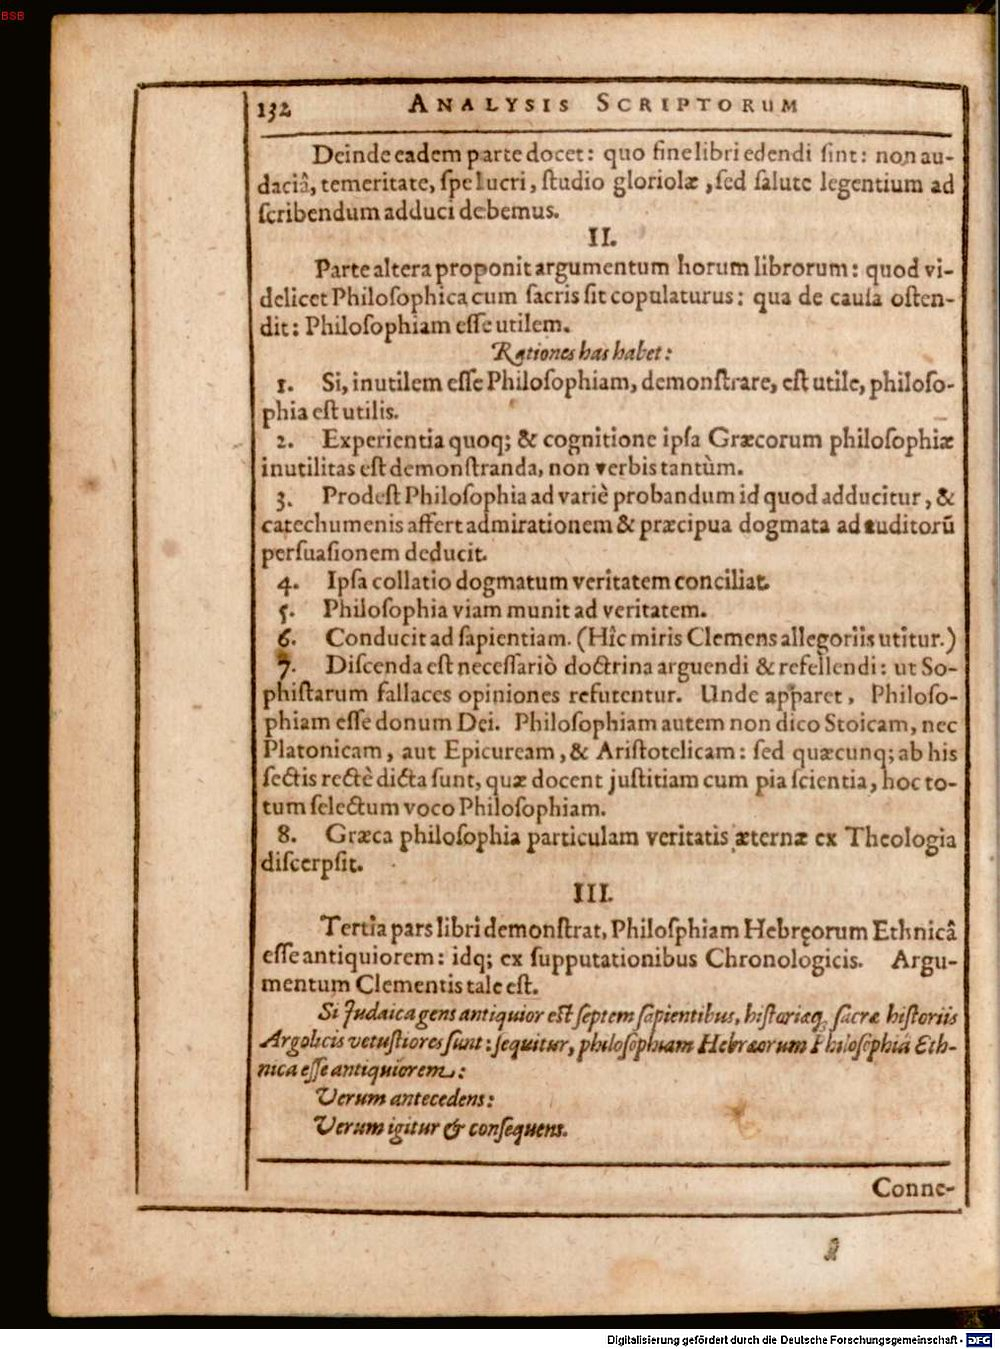 BSB
132 ANALYSIS SCRIPTORUM
Deinde eadem parte docet: quo fine libri edendi ſint: non au-
daciâ, temeritate, ſpe lucri, ſtudio gloriolæ, ſed ſalute legentium ad
ſcribendum adduci debemus.
II.
Parte altera proponit argumentum horum librorum: quod vi-
delicet Philoſophica cum ſacris ſit copulaturus: qua de cauſa oſten-
dit: Philoſophiam eſſe utilem.
Rationes has habet:
1. Si, inutilem eſſe Philoſophiam, demonſtrare, eſt utile, philoſo-
phia eſt utilis.
2. Experientia quoq; & cognitione ipſa Græcorum philoſophiæ
inutilitas eſt demonſtranda, non verbis tantùm.
3. Prodeſt Philoſophia ad variè probandum id quod adducitur, &
catechumenis affert admirationem & præcipua dogmata ad auditorū
perſuaſionem deducit.
4. Ipſa collatio dogmatum veritatem conciliat.
5. Philoſophia viam munit ad veritatem.
6. Conducit ad ſapientiam. (Hîc miris Clemens allegoriis utitur.)
7. Diſcenda eſt neceſſariò doctrina arguendi & refellendi: ut So-
phiſtarum fallaces opiniones refutentur. Unde apparet, Philoſo-
phiam eſſe donum Dei. Philoſophiam autem non dico Stoicam, nec
Platonicam, aut Epicuream, & Ariſtotelicam: ſed quæcunq; ab his
ſectis rectè dicta ſunt, quæ docent juſtitiam cum pia ſcientia, hoc to-
tum ſelectum voco Philoſophiam.
8. Græca philoſophia particulam veritatis æternæ ex Theologia
diſcerpſit.
III.
Tertia pars libri demonſtrat, Philoſphiam Hebręorum Ethnicâ
eſſe antiquiorem: idq; ex ſupputationibus Chronologicis. Argu-
mentum Clementis tale eſt.
Si Judaica gens antiquior eſt ſeptem ſapientibus, hiſtoriæq; ſacræ hiſtoriis
Argolicis vetuſtiores ſunt: ſequitur, philoſophiam Hebræorum Philoſophiâ Eth-
nica eſſe antiquiorem:
Verum antecedens:
Verum igitur & conſequens.
Conne-
Digitalisierung gefördert durch die Deutsche Forschungsgemeinschaft - DFG